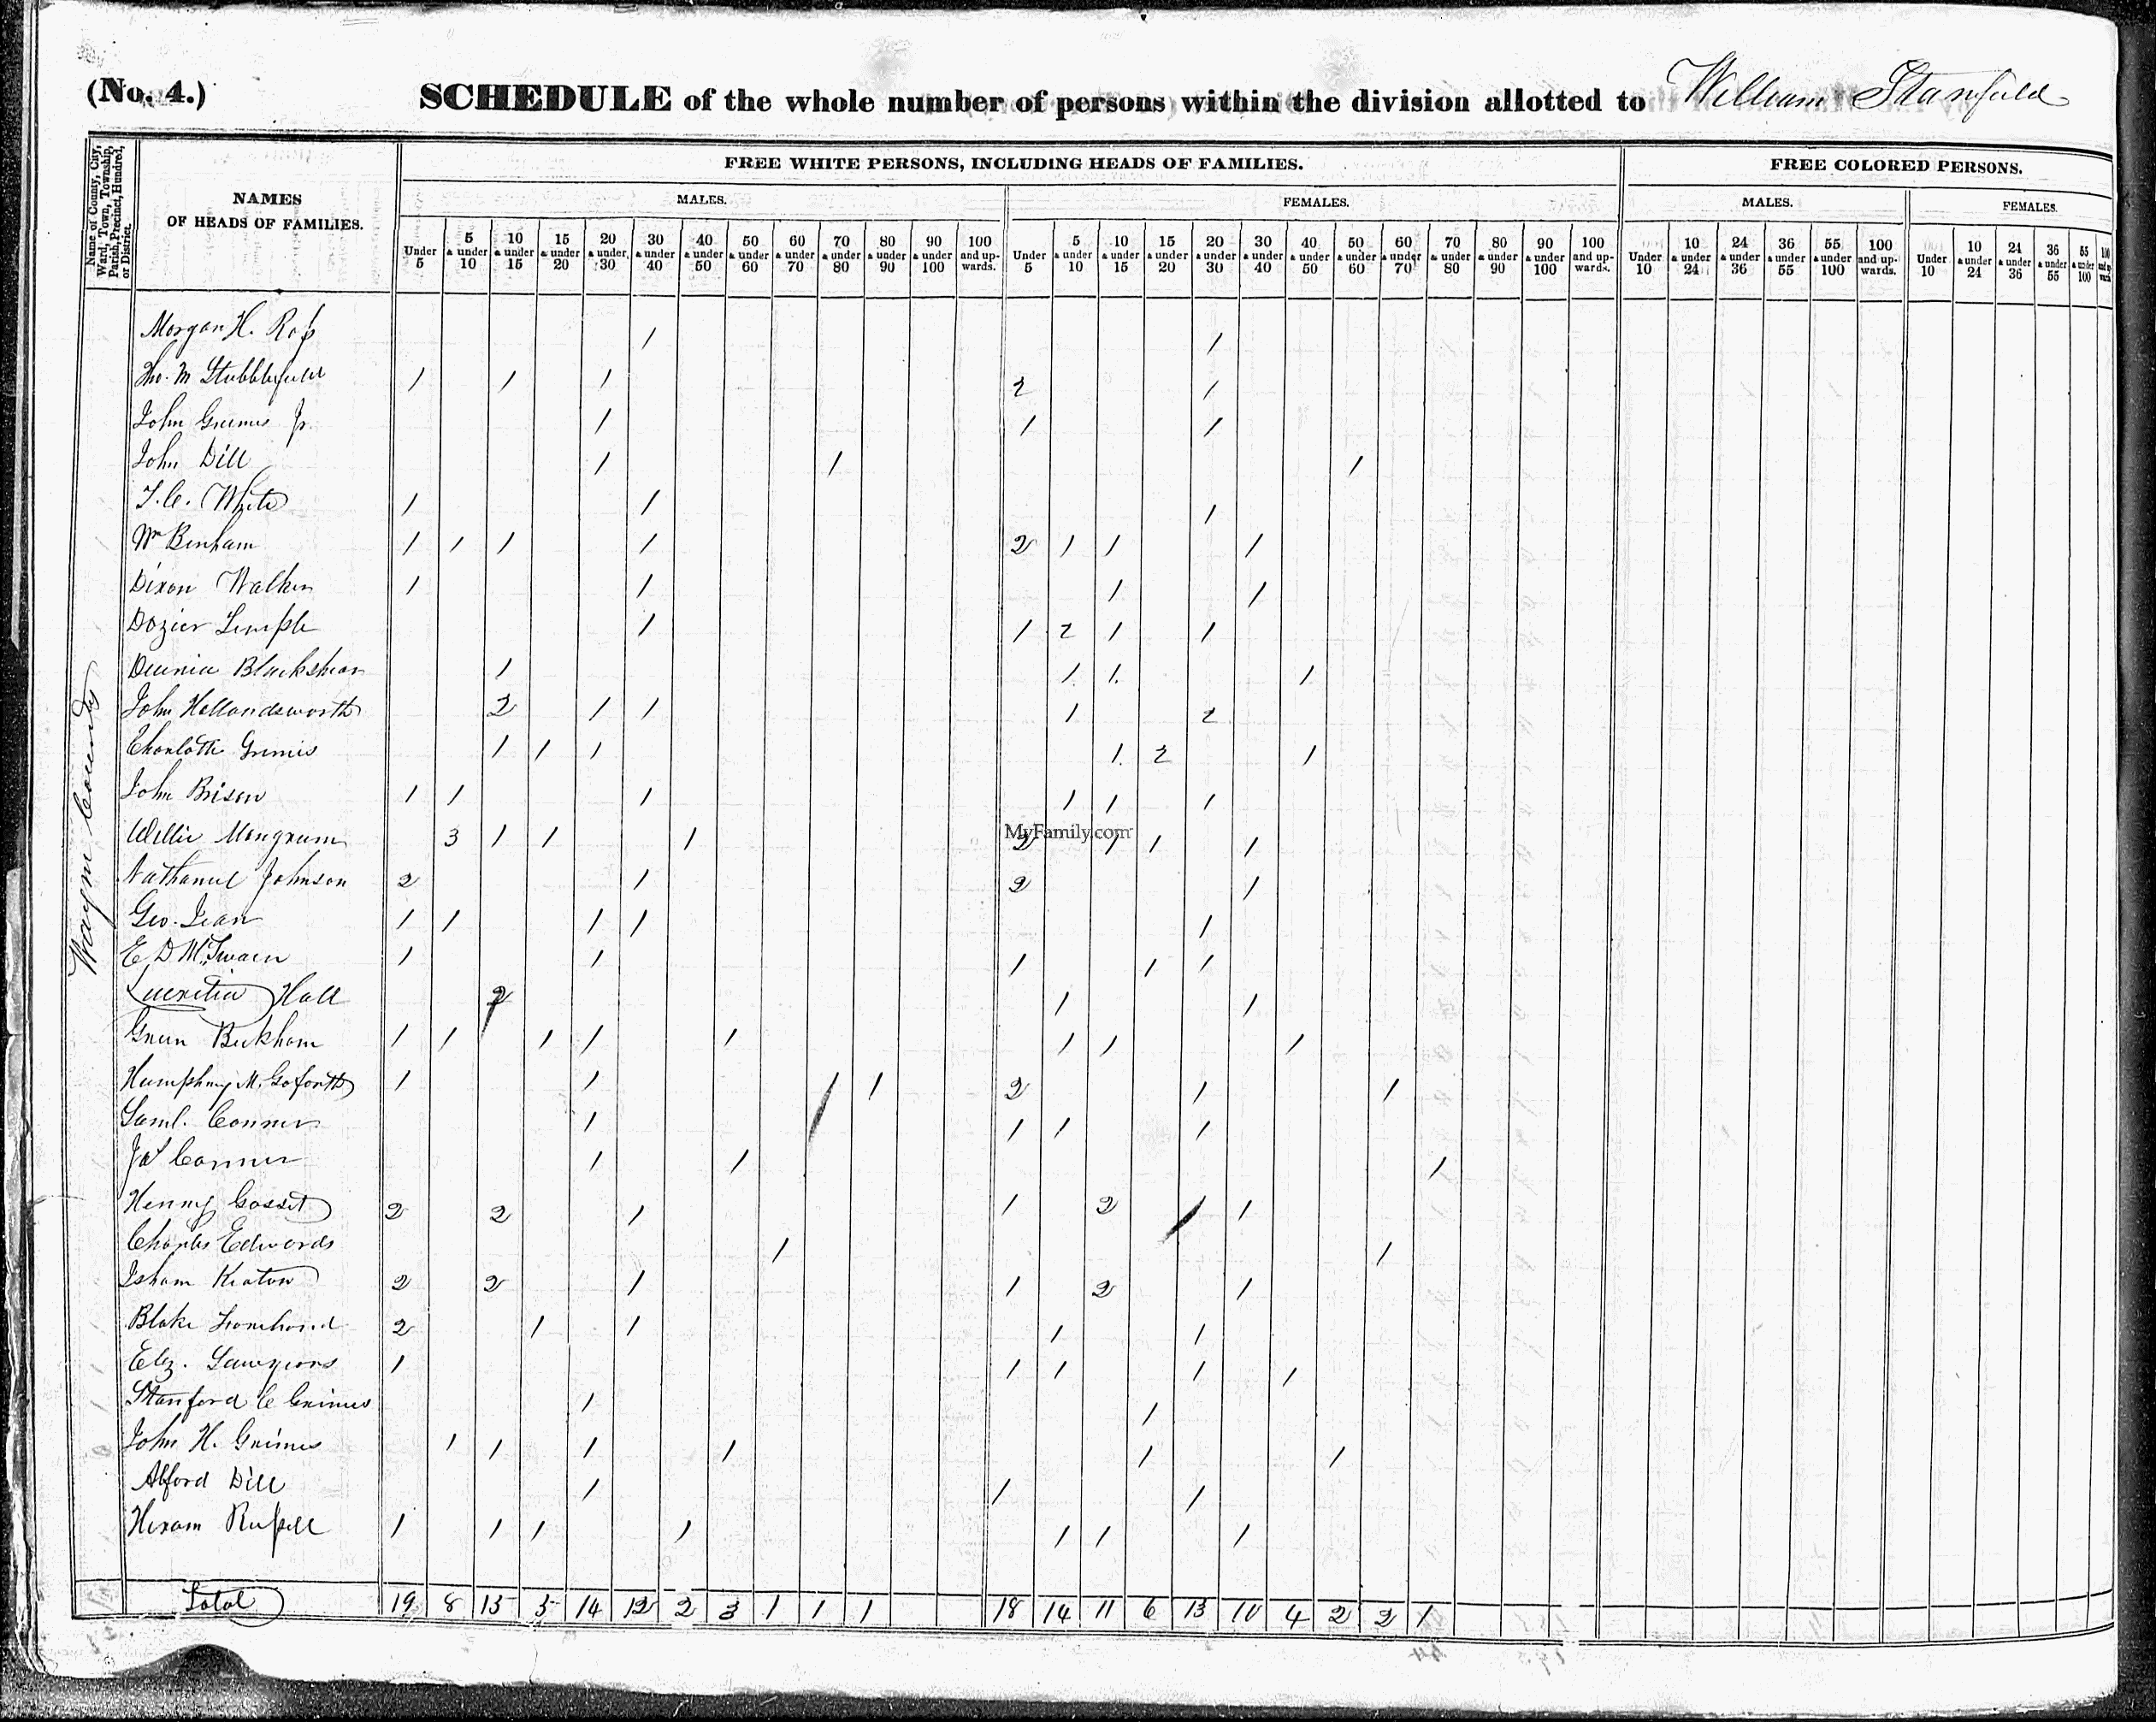 (No. 4.) SCHEDULE of the whole number of persons within the division allotted to William Stanfield
Name of County, City, Ward, Town, Township, Parish, Precinct, Hundred, or District.
NAMES OF HEADS OF FAMILIES.
FREE WHITE PERSONS, INCLUDING HEADS OF FAMILIES. FREE COLORED PERSONS.
MALES. FEMALES. MALES. FEMALES.
Under 5 | 5 & under 10 | 10 & under 15 | 15 & under 20 | 20 & under 30 | 30 & under 40 | 40 & under 50 | 50 & under 60 | 60 & under 70 | 70 & under 80 | 80 & under 90 | 90 & under 100 | 100 and upwards. | Under 5 | 5 & under 10 | 10 & under 15 | 15 & under 20 | 20 & under 30 | 30 & under 40 | 40 & under 50 | 50 & under 60 | 60 & under 70 | 70 & under 80 | 80 & under 90 | 90 & under 100 | 100 and upwards. | Under 10 | 10 & under 24 | 24 & under 36 | 36 & under 55 | 55 & under 100 | 100 and upwards. | Under 10 | 10 & under 24 | 24 & under 36 | 36 & under 55 | 55 & under 100 | 100 and upwards
Wayne County
Morgan H. Ross 1 1
Tho. M Stubblefield 1 1 1 2 1
John Greemes Jr. 1 1 1
John Dill 1 1 1
White 1 1 1
Wm Benham 1 1 1 1 2 1 1 1
Dixon Walker 1 1 1 1
Dozier 1 1 2 1 1
Blackshear 1 1 1 1
John Hollandsworth 2 1 1 1 2
Charlotte Grimes 1 1 1 1 2 1
John Brison 1 1 1 1 1 1
Willie Mangrum 3 1 1 1 2 1 1 1
MyFamily.com
Nathaniel Johnson 2 1 2 1
Geo. 1 1 1 1 1
E D McSwain 1 1 1 1 1
Lucretia Hall 2 1 1
Green Beckham 1 1 1 1 1 1 1 1
Humphrey M. Goforth 1 1 1 1 2 1 1
Saml. Conner 1 1 1 1
Conner 1 1 1
Henry Gosset 2 2 1 1 2 1 1
Charles Edwards 1 1
Isham Keaton 2 2 1 1 2 1
Blake 2 1 1 1 1
Elez. 1 1 1 1 1
Stanford C Grimes 1 1
John H. Grimes 1 1 1 1 1 1
Alford Dill 1 1 1
Hiram Russell 1 1 1 1 1 1 1
Total 19 8 15 5 14 12 2 3 1 1 1 18 14 11 6 13 10 4 2 2 1